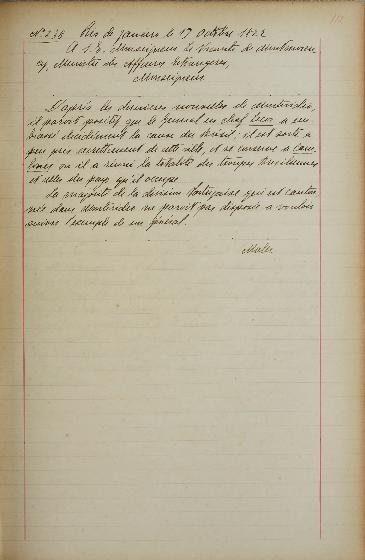 112
Nº 238 Rio de Janeiro le 17 Octobre 1822
A S. E. Monseigneur le Vicomte de Montmoren-
cy, Ministre des Affaires Etrangères,
Monseigneur,
D'après les dernières nouvelles de Montévidéo,
il paroit positif que le Général en chef Lecor a em-
brassé décidément la cause du Brésil; il est sorti à
peu près secrètement de cette ville, et se conserve à Cane-
lones où il a réuni la totalité des troupes Brésiliennes
et celles du pays qu'il occupe.
La majorité de la division Portugaise qui est canton-
née dans Montévidéo ne paroit pas disposée à vouloir
suivre l'exemple de son général.
Maler